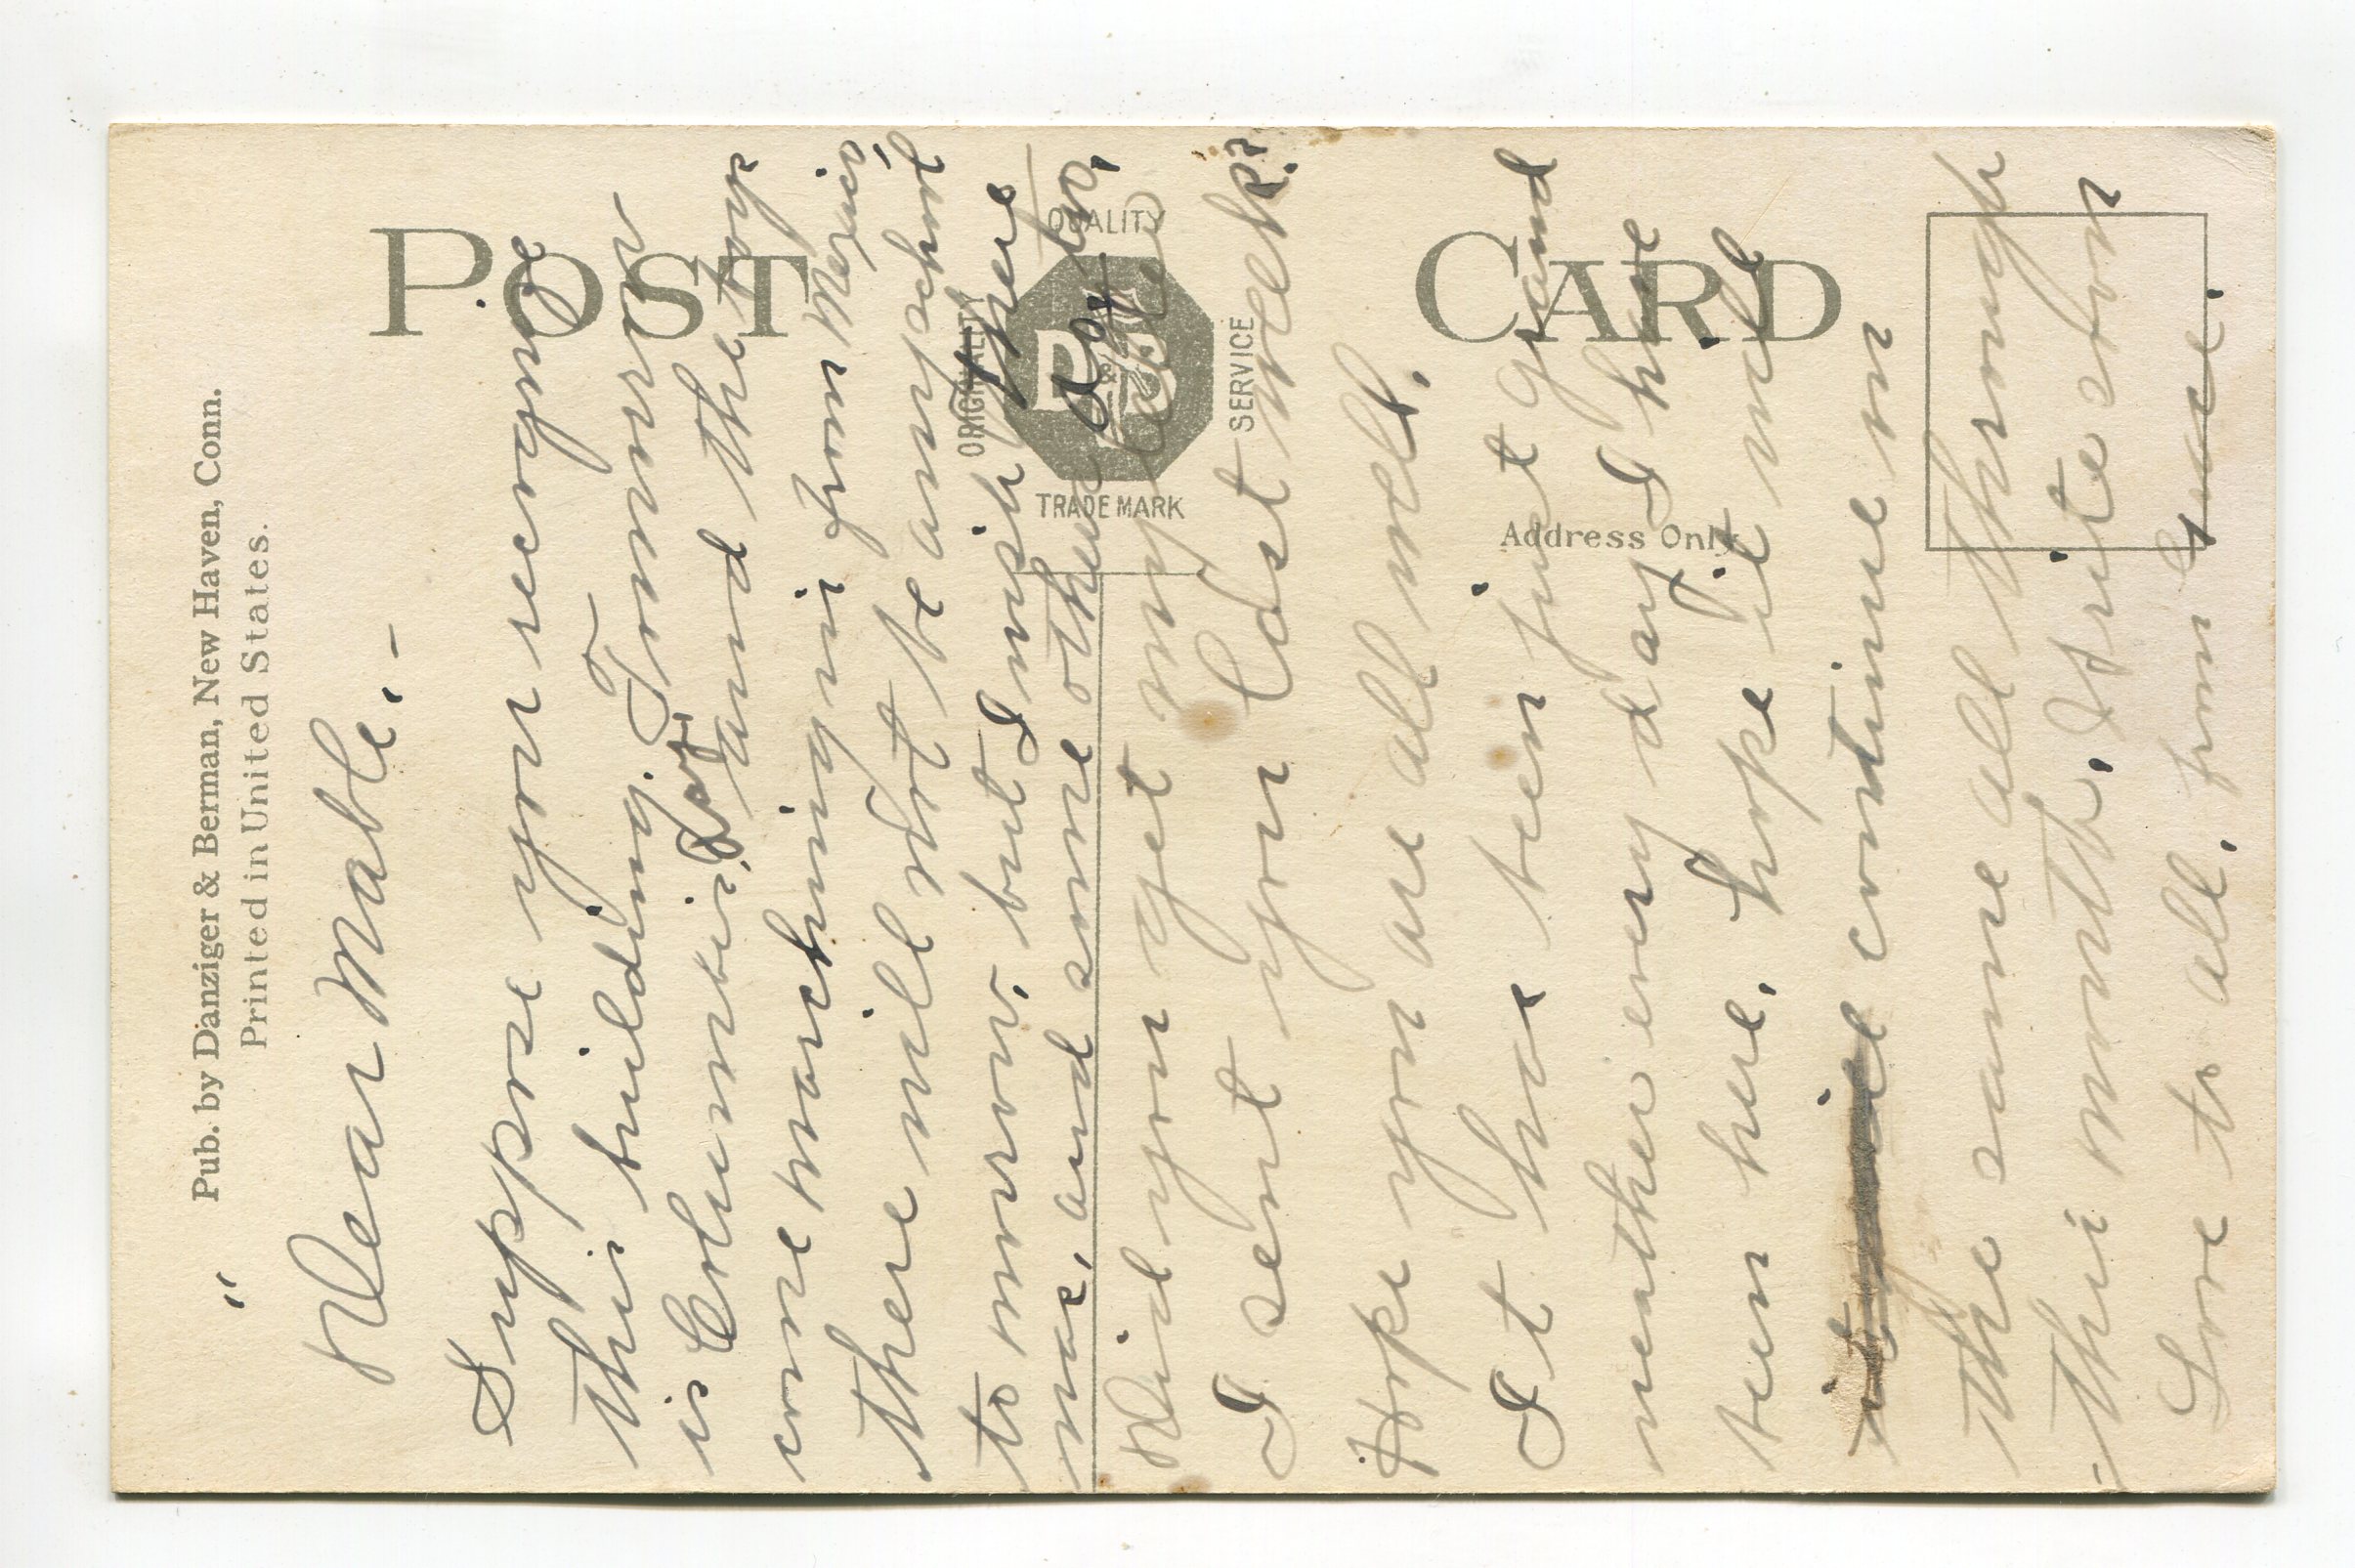 Pub. by Danziger & Berman, New Haven, Conn.
Printed in United States.
POST CARD
ORIGINALTY
QUALITY
SERVICE
TRADE MARK
D & B
Address Only
Dear Mable. –
Suppose you recognize
this building. Tomorrow
is Columbus Day and the boys
come marching in from Mexico,
there will not be any school
to morrow, but I wish there
was, and some others do so,
Did you get my letter
I sent you last week?
Hope you are all well.
It has been just grand
weather every day I have
been here. hope it will
continue on
the same all through
this month. Write soon
Love to all, from Grace.